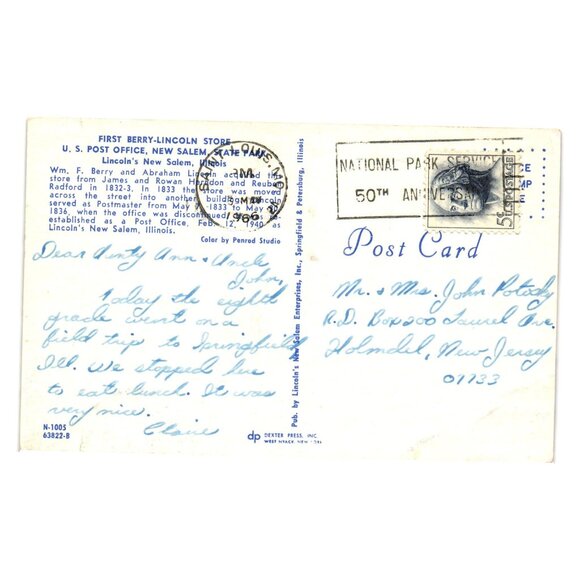 FIRST BERRY-LINCOLN STORE
U. S. POST OFFICE, NEW SALEM, STATE PARK
Lincoln's New Salem, Illinois
Wm. F. Berry and Abraham Lincoln acquired the
store from James and Rowan Herndon and Reuben
Radford in 1832-3. In 1833 the store was moved
across the street into another building. Lincoln
served as Postmaster from May 1833 to May
1836, when the office was discontinued.
established as a Post Office, Feb. 12, 1940 as
Lincoln's New Salem, Illinois.
Color by Penrod Studio
Dear Aunty Ann + Uncle
John,
Today the eighth
grade went on a
field trip to Springfield
Ill. We stopped here
to eat lunch. It was
very nice.
Claire
N-1005
63822-B
dp DEXTER PRESS, INC.
WEST NYACK, NEW YORK
Pub. by Lincoln's New Salem Enterprises, Inc., Springfield & Petersburg, Illinois
SAINT LOUIS, MO.
PM
MAY
1966
NATIONAL PARK SERVICE
50TH ANNIVERS
5¢ U.S. POSTAGE
CE
MP
E
Post Card
Mr. + Mrs. John Potody
R.D. Box 200 Laurel Ave.
Holmdel, New Jersey
07733